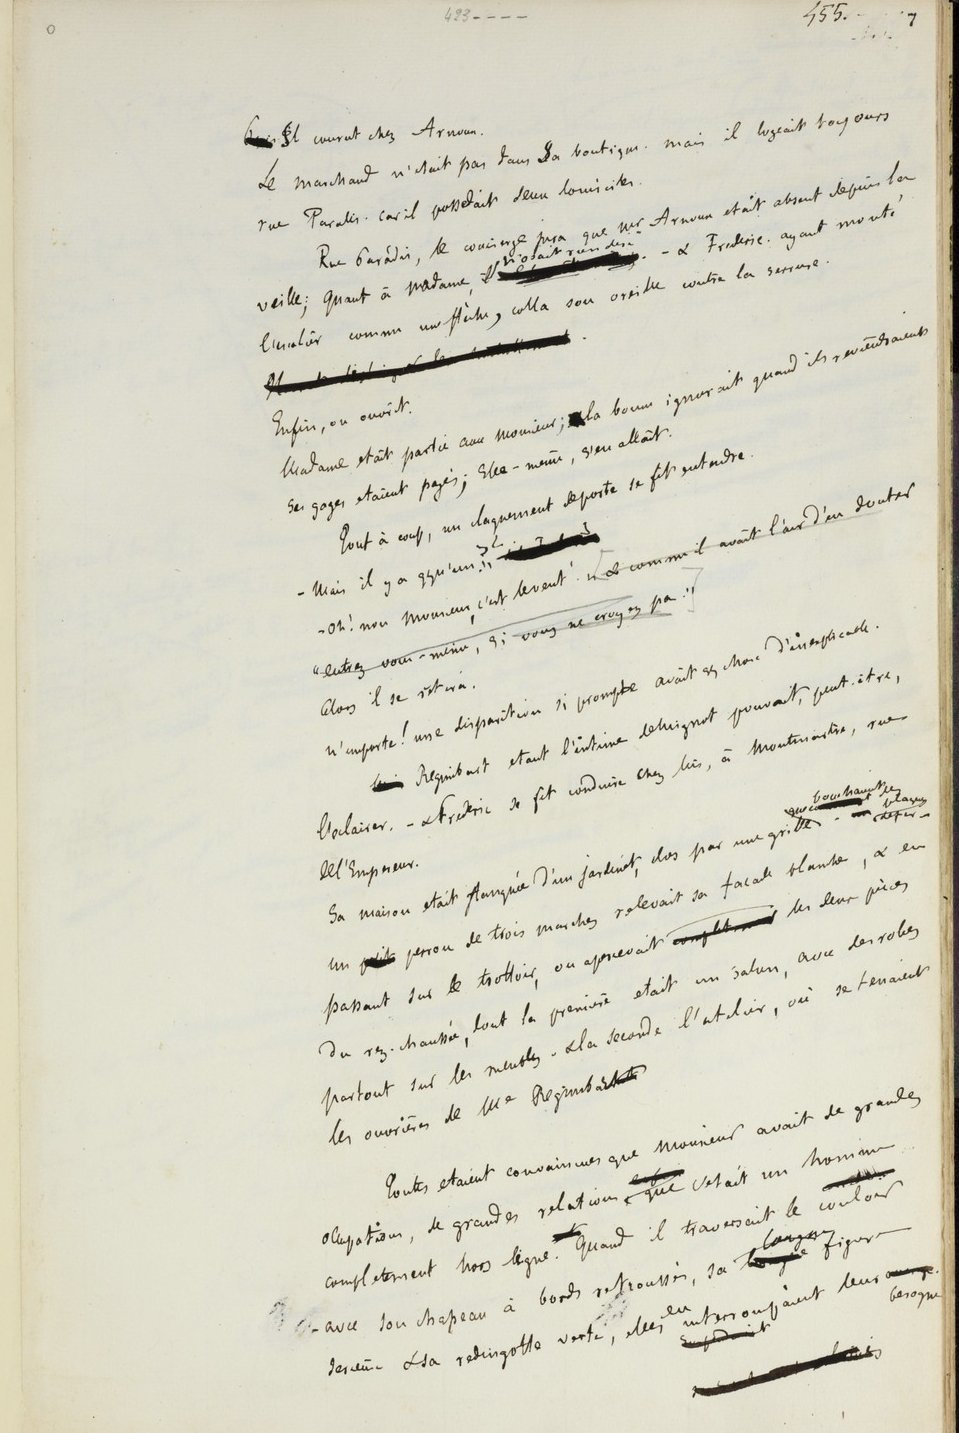 423----
455.
7
Il courut chez Arnoux.
Le marchand n'était pas dans sa boutique. mais il logeait toujours
rue Paradis. car il possédait deux domiciles.
Rue Paradis, le concierge jura que Mr Arnoux etait absent depuis la
veille; quant à Madame, il n'osait rien dire. - & Frederic. ayant monté
l'escalier comme une flèche, colla son oreille contre la serrure.
Enfin, on ouvrit.
Madame etait partie avec Monsieur; la bonne ignorait quand ils reviendraient
ses gages etaient payés; Elle-même, s'en allait.
Tout à coup, un claquement de porte se fit entendre.
- Mais il y a qqu'un?
- Oh! non Monsieur, c'est le vent! & comme il avait l'air d'en douter
"entrez vous-même, si vous ne croyez pas."
Alors il se retira.
N'importe! une disparition si prompte avait qq chose d'inexplicable.
Regimbart etant l'intime de Mignot pouvait, peut-être,
l'éclairer. - & Frederic se fit conduire chez lui, à Montmartre, rue
de l'Empereur.
bouchaient des
plaques
de fer-
Sa maison etait flanquée d'un jardinet, clos par une grille
un petit perron de trois marches relevait sa façade blanche, & en
passant sur le trottoir, on apercevait les deux pièces
du rez-chaussée, dont la première etait un salon, avec des robes
partout sur les meubles - & la seconde l'atelier, où se tenaient
les ouvrières de Me Regimbart
Toutes etaient convaincues que Monsieur avait de grandes
occupations, de grandes relations, que c'etait un homme
completement hors ligne. Quand il traversait le couloir
- avec son chapeau à bords retroussés, sa longue figure
serieuse & sa redingotte verte, elles en interrompaient leur
besogne